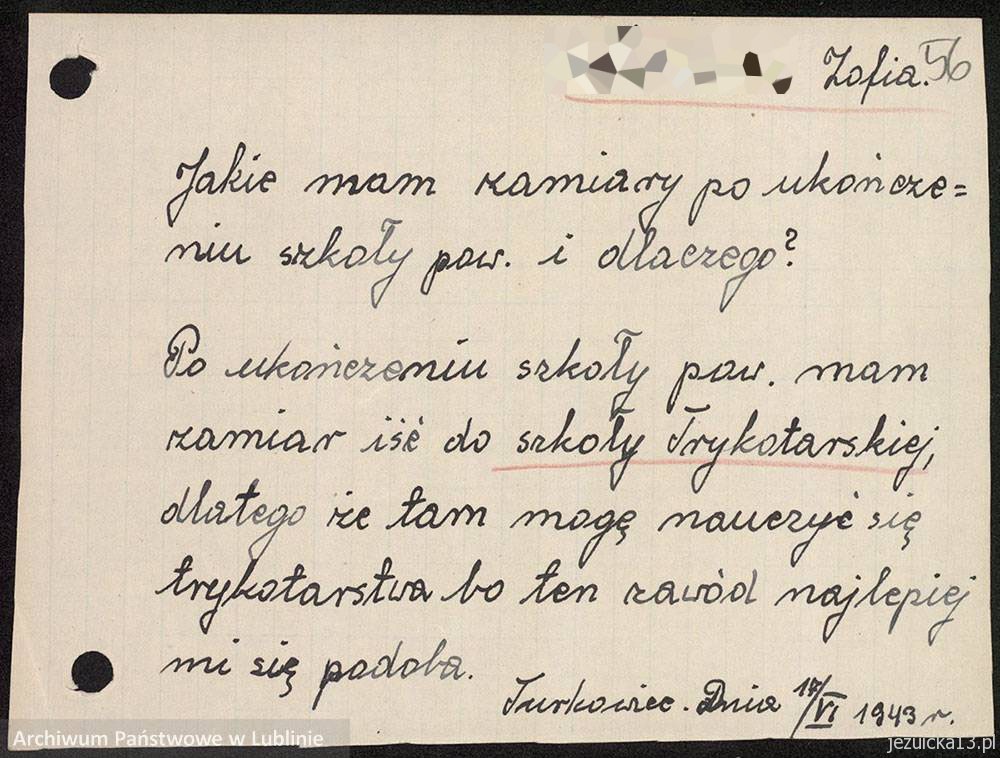 Zofia. 56
Jakie mam zamiary po ukończe=
niu szkoły pow. i dlaczego?
Po ukończeniu szkoły pow. mam
zamiar iść do szkoły Trykotarskiej,
dlatego że tam mogę nauczyć się
trykotarstwa bo ten zawód najlepiej
mi się podoba.
Turkowiec. Dnia 17/VI 1943 r.
Archiwum Państwowe w Lublinie
jezuicka13.pl